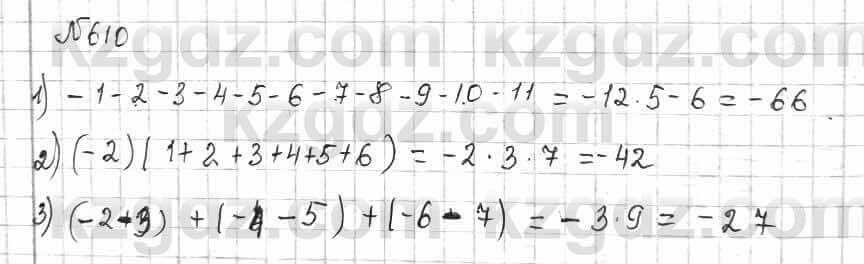 №610
kzgdz.com kzgdz.com
1) -1-2-3-4-5-6-7-8-9-10-11 = -12·5-6 = -66
kzgdz.com
2) (-2)(1+2+3+4+5+6) = -2·3·7 = -42
3) (-2-3) + (-4-5) + (-6-7) = -3·9 = -27
kzgdz.com kzgdz.com